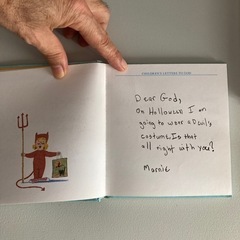 CHILDREN'S LETTERS TO GOD
Dear God,
On Halloween I am
going to wear a Devil's
costume. Is that
all right with you?
Marnie